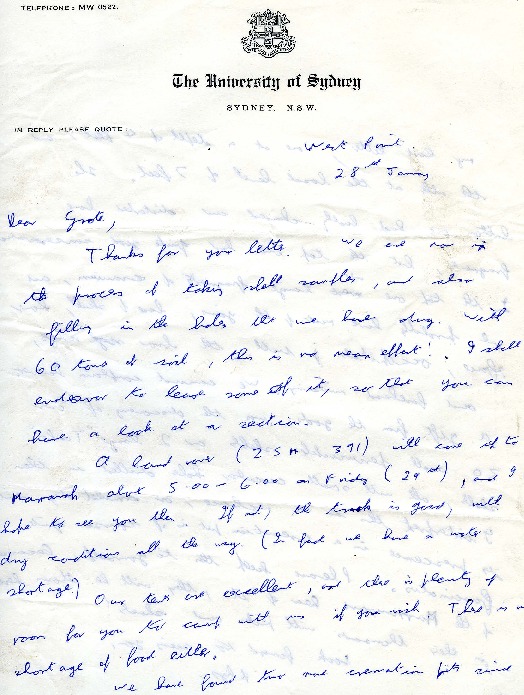 TELEPHONE: MW 0522.
The University of Sydney
SYDNEY, N.S.W.
IN REPLY PLEASE QUOTE
West Point
28th
Dear Grote,
Thanks for your letter. We are now in
the process of taking shell samples, and also
filling in the holes that we have dug. With
60 tons of soil, this is no mean effort! I shall
endeavor to leave some of it, so that you can
have a look at a section.
A land rover (ZSA 391) will come up to
Marrawah about 5.00-6.00 on Friday (29th), and I
hope to see you then. If not, the track is good, with
dry conditions all the way. (In fact we have a water
shortage.)
Our tents are excellent, and there is plenty of
room for you to camp with us if you wish. There is no
shortage of food either.
We have found two more cremation pits since